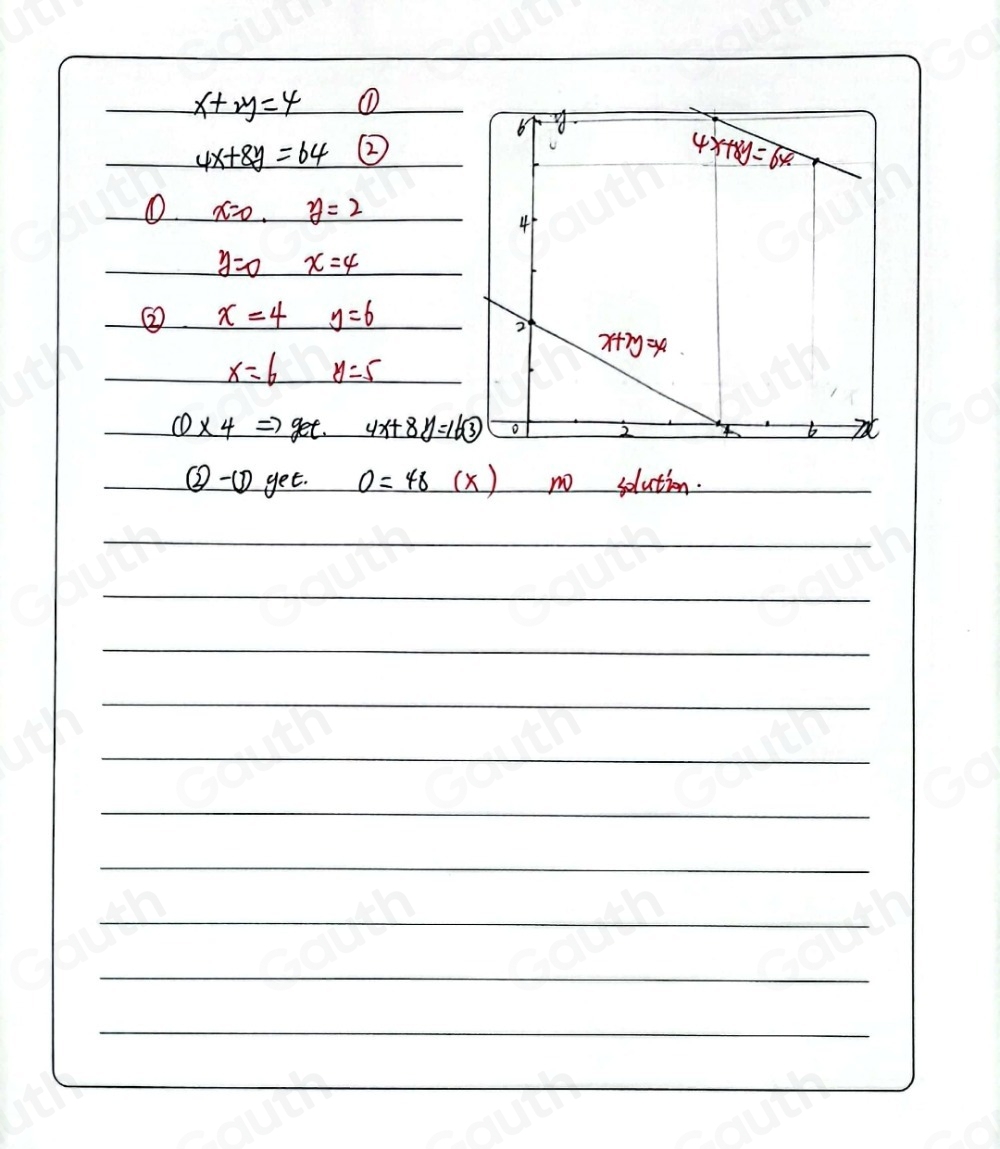 x+2y=4 ①
4x+8y=64 ②
① x=0. y=2
y=0 x=4
② . x=4 y=6
x=6 y=5
①×4 => get. 4x+8y=16③
②-① get. 0=48 (x) no solution.
6 y
4x+8y=64
4
2
x+2y=4
0 2 4 6 x
Gauth